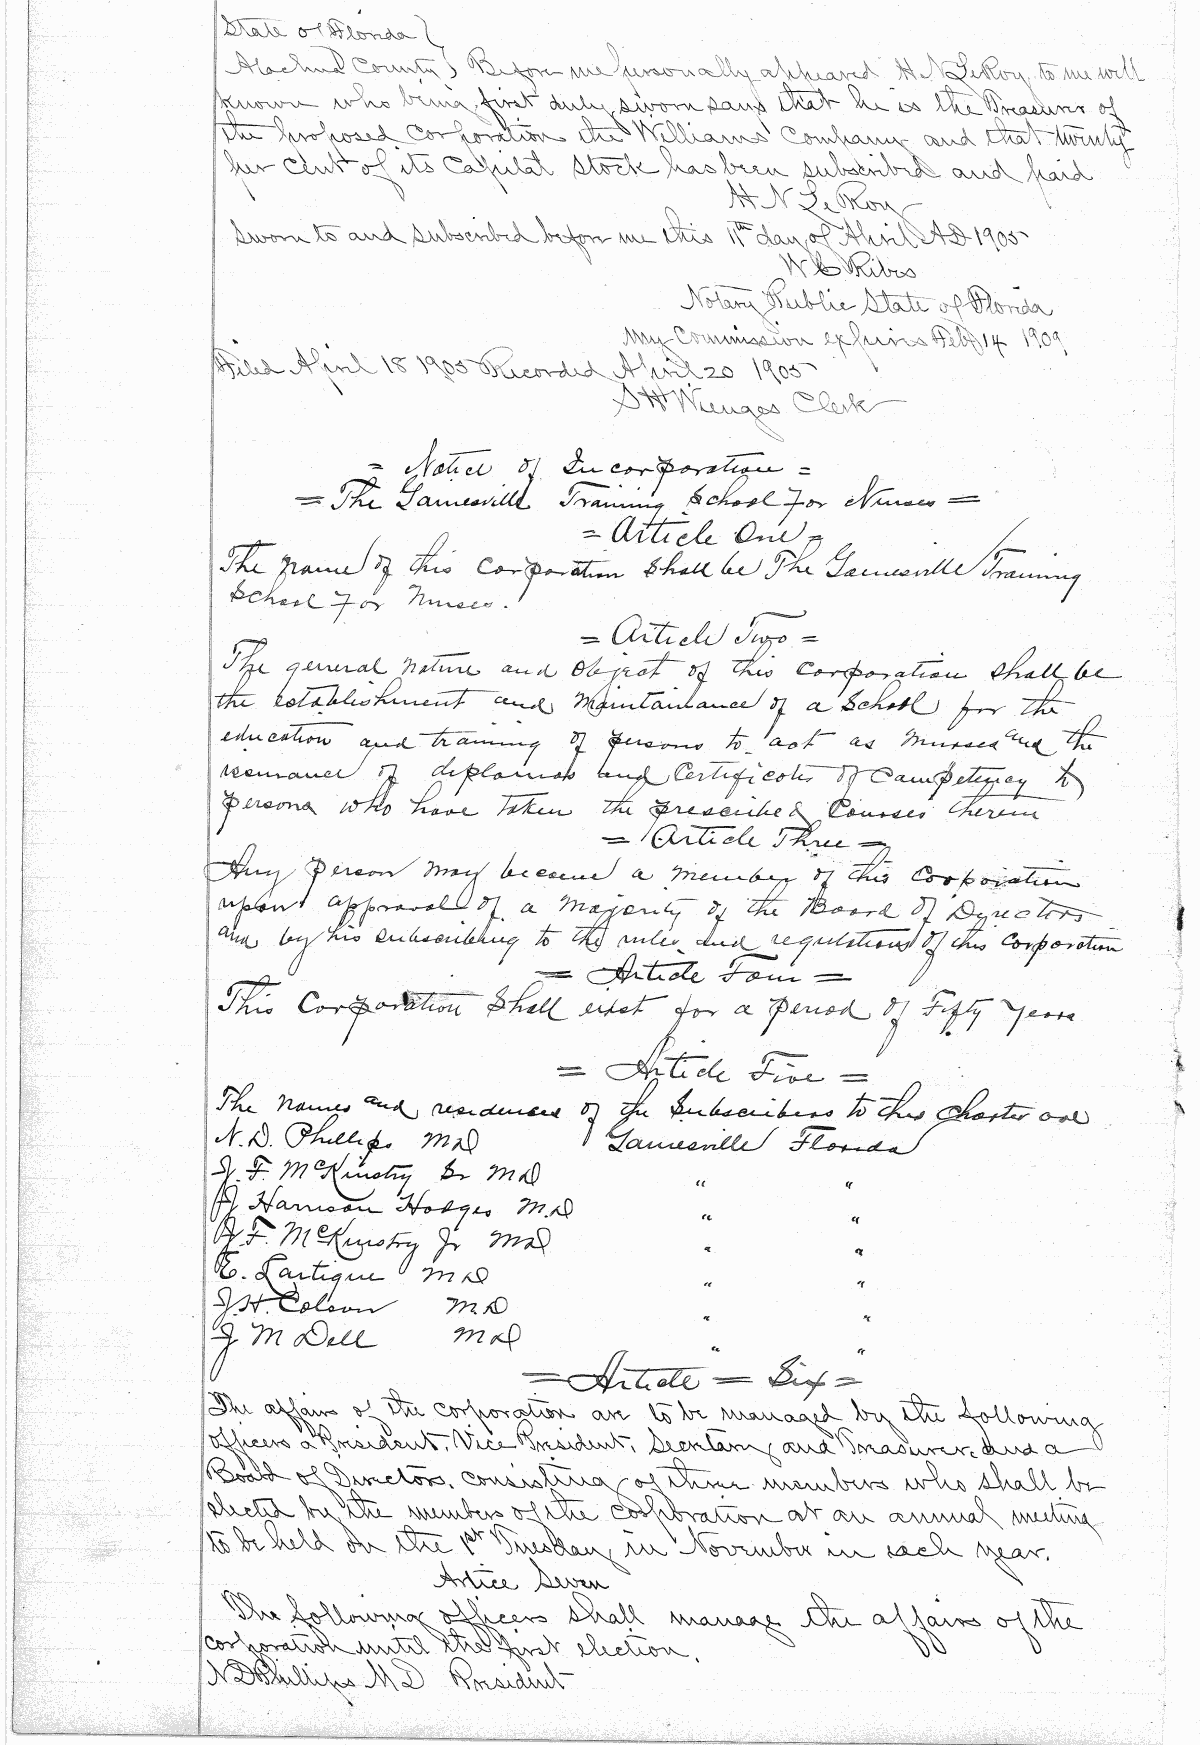 State of Florida }
Alachua County } Before me personally appeared H N LeRoy to me well
known who being first duly sworn says that he is the Treasurer of
the proposed corporation the Williams Company and that twenty
per cent of its capital stock has been subscribed and paid
H N LeRoy
Sworn to and subscribed before me this 11th day of April AD 1905
W C
Notary Public State of Florida
My Commission expires Feby 14 1909
Filed April 18 1905 Recorded April 20 1905
S H Wienges Clerk
= Notice of Incorporation =
= The Gainesville Training School For Nurses =
= Article One =
The name of this corporation shall be The Gainesville Training
School For Nurses.
= Article Two =
The general nature and object of this corporation shall be
the establishment and maintainance of a School for the
education and training of persons to act as nurses and the
issuance of diplomas and Certificates of Competency to
persons who have taken the prescribed Courses therein
= Article Three =
Any person may become a member of this Corporation
upon approval of a majority of the Board of Directors
and by his subscribing to the rules and regulations of this corporation
= Article Four =
This Corporation Shall exist for a period of Fifty years
= Article Five =
The names and residences of the Subscribers to this charter are
N. D. Phillips MD Gainesville Florida
J. F. McKinstry Sr MD " "
J Harrison Hodges M.D " "
J. F. McKinstry Jr MD " "
E. Lartigue MD " "
J. H. Colson MD " "
J M Dell MD " "
= Article = Six =
The affairs of the corporation are to be managed by the following
officers a President, Vice President, Secretary and Treasurer, and a
Board of Directors, consisting of three members who shall be
elected by the members of the corporation at an annual meeting
to be held on the 1st Tuesday in November in each year.
Artice Seven
The following officers shall manage the affairs of the
corporation until the first election.
N D Phillips M D President